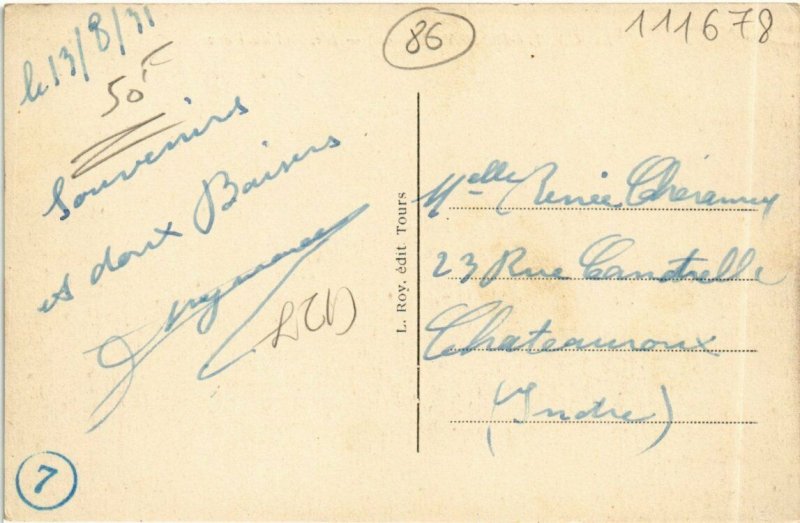 le 13/8/31
50F
86
111678
Souvenirs
et doux Baisers
L. Roy, édit Tours
Melle Renée
23 Rue Cantrelle
Chateauroux
(Indre)
7